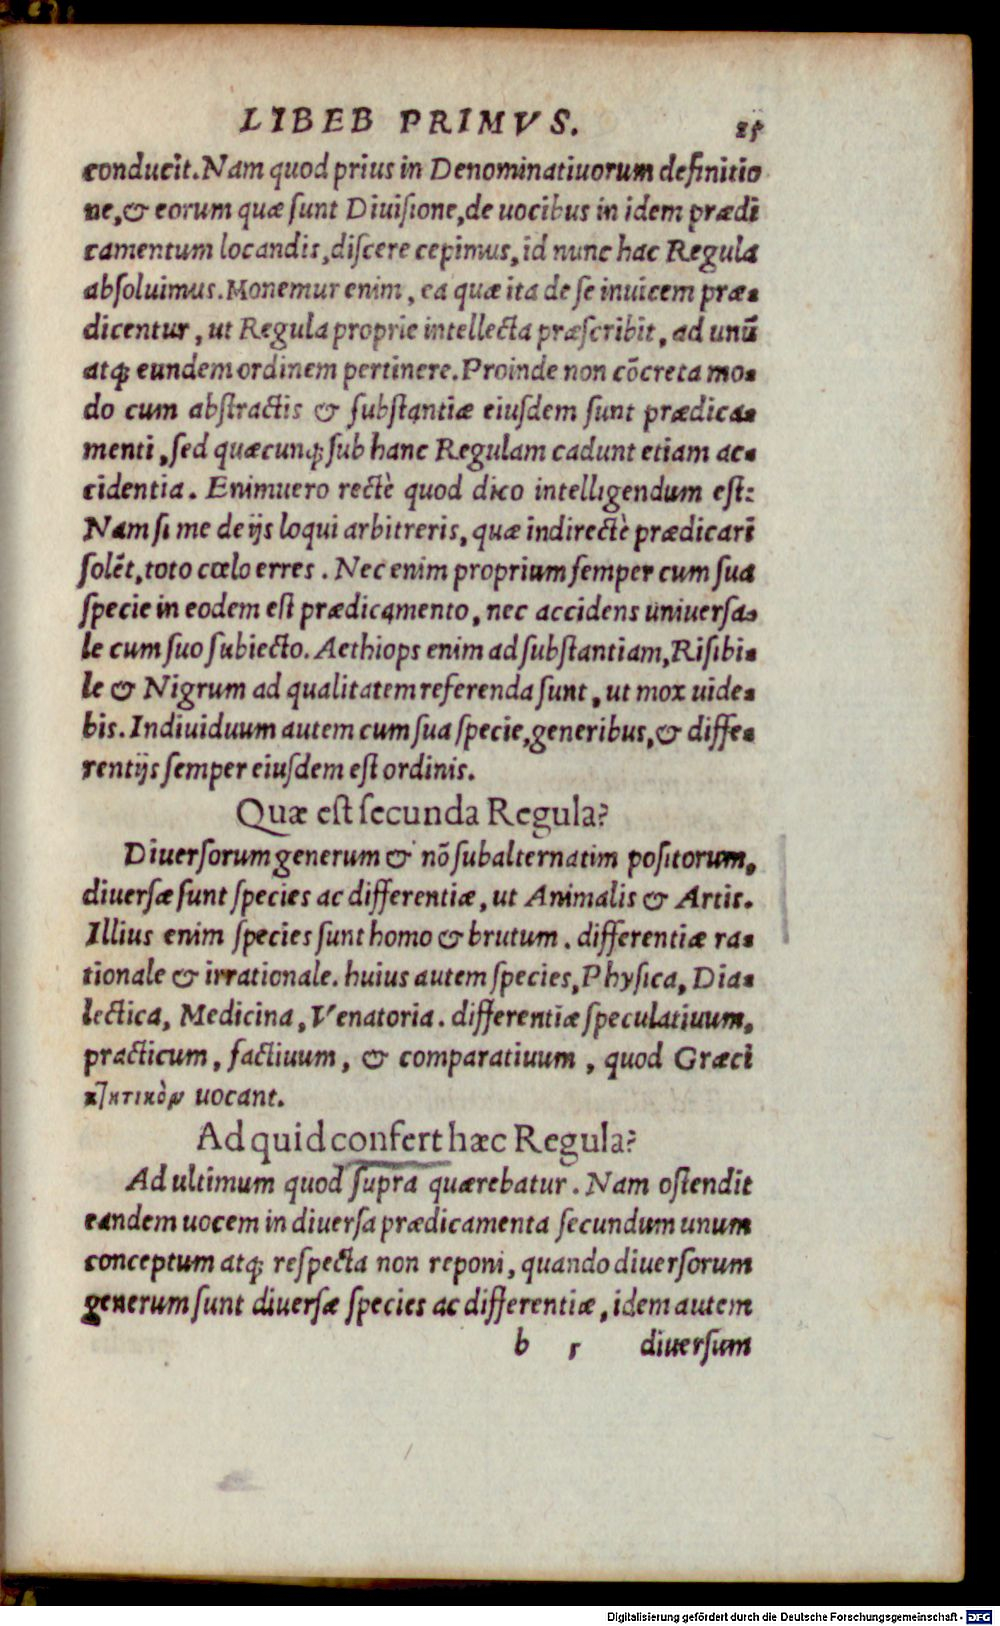 LIBEB PRIMVS. 25
conducit. Nam quod prius in Denominatiuorum definitio
ne, & eorum quæ ſunt Diuiſione, de uocibus in idem prædi
camentum locandis, diſcere cepimus, id nunc hac Regula
abſoluimus. Monemur enim, ea quæ ita de ſe inuicem præ-
dicentur, ut Regula proprie intellecta præſcribit, ad unũ
atq; eundem ordinem pertinere. Proinde non cõcreta mo-
do cum abſtractis & ſubſtantiæ eiuſdem ſunt prædica-
menti, ſed quæcunq; ſub hanc Regulam cadunt etiam ac-
cidentia. Enimuero rectè quod dico intelligendum eſt:
Nam ſi me de ijs loqui arbitreris, quæ indirectè prædicari
ſolẽt, toto cœlo erres. Nec enim proprium ſemper cum ſua
ſpecie in eodem eſt prædicamento, nec accidens uniuerſa-
le cum ſuo ſubiecto. Aethiops enim ad ſubſtantiam, Riſibi-
le & Nigrum ad qualitatem referenda ſunt, ut mox uide-
bis. Indiuiduum autem cum ſua ſpecie, generibus, & diffe-
rentijs ſemper eiuſdem eſt ordinis.
Quæ eſt ſecunda Regula?
Diuerſorum generum & nõ ſubalternatim poſitorum,
diuerſæ ſunt ſpecies ac differentiæ, ut Animalis & Artis.
Illius enim ſpecies ſunt homo & brutum. differentiæ ra-
tionale & irrationale. huius autem ſpecies, Phyſica, Dia-
lectica, Medicina, Venatoria. differentiæ ſpeculatiuum,
practicum, factiuum, & comparatiuum, quod Græci
κτητικὸν uocant.
Ad quid confert hæc Regula?
Ad ultimum quod ſupra quærebatur. Nam oſtendit
eandem uocem in diuerſa prædicamenta ſecundum unum
conceptum atq; reſpecta non reponi, quando diuerſorum
generum ſunt diuerſæ ſpecies ac differentiæ, idem autem
b 5 diuerſum
Digitalisierung gefördert durch die Deutsche Forschungsgemeinschaft - DFG